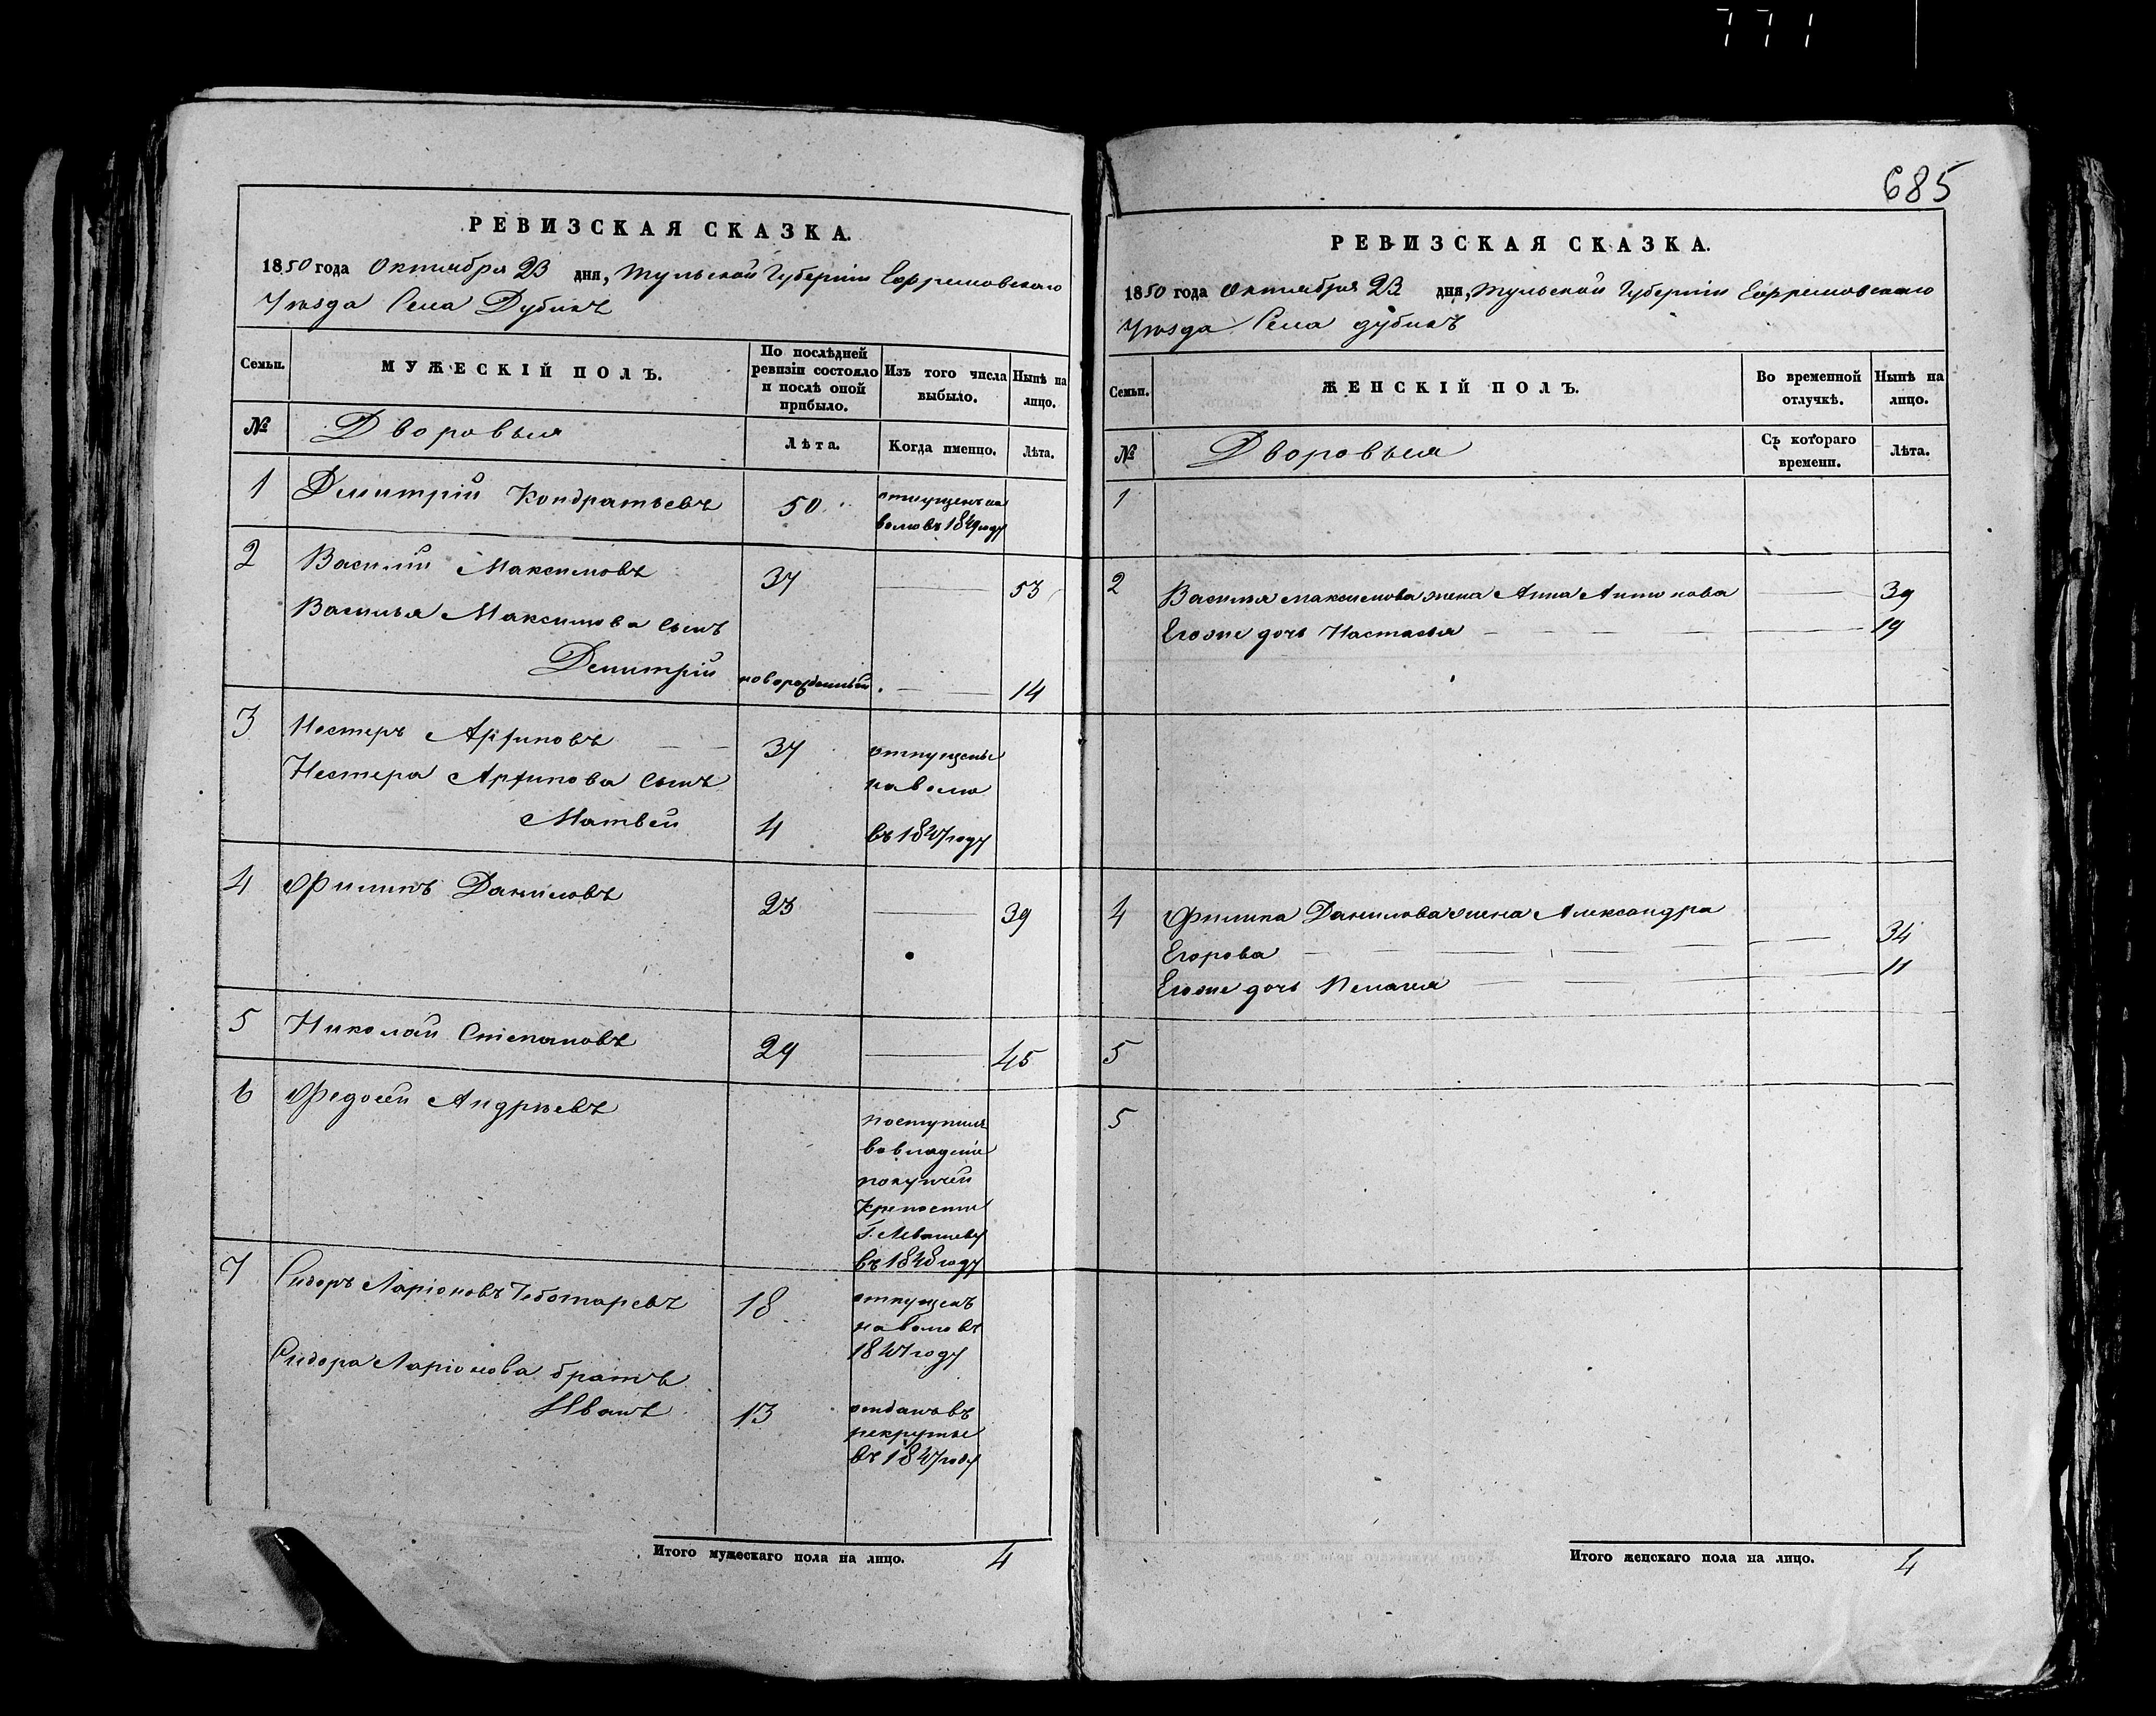 771
РЕВИЗСКАЯ СКАЗКА.
1850 года Октября 23 дня, Тульской Губерніи Ефремовскаго
Уѣзда Села Дубикъ
Семьи.
МУЖЕСКІЙ ПОЛЪ.
По послѣдней ревизіи состояло и послѣ оной прибыло.
Изъ того числа выбыло.
Нынѣ на лицо.
№
Дворовыя
Лѣта.
Когда именно.
Лѣта.
1 Димитрій Кондратьевъ 50 отпущенъ на
волю въ 1849 году
2 Василій Максимовъ 37 — 53
Василья Максимова сынъ
Димитрій новорожденный — 14
3 Нестеръ Архиповъ — — 37 отпущены
Нестера Архипова сынъ на волю
Матвей 4 въ 1847 году
4 Филипъ Даниловъ 23 — 39
5 Николай Степановъ 29 — 45
6 Федосѣй Андрѣевъ
поступилъ
во владѣніе
покупчей
крѣпости
Г.
въ 1848 году
7 Сидоръ Ларіоновъ Чеботаревъ 18 отпущенъ
на волю въ
1847 году
Сидора Ларіонова братъ
Иванъ 13 отданъ въ
рекруты
въ 1847 году
Итого мужескаго пола на лицо. 4
685
РЕВИЗСКАЯ СКАЗКА.
1850 года Октября 23 дня, Тульской Губерніи Ефремовскаго
Уѣзда Села Дубикъ
Семьи.
ЖЕНСКІЙ ПОЛЪ.
Во временной отлучкѣ.
Нынѣ на лицо.
№
Дворовыя
Съ котораго времени.
Лѣта.
1
2 Василья Максимова жена Анна Антонова — 39
Егоже дочь Настасья — — — — 19
4 Филипа Данилова жена Александра
Егорова — — — — 34
Егоже дочь Пелагея — — — 11
5
5
Итого женскаго пола на лицо. 4